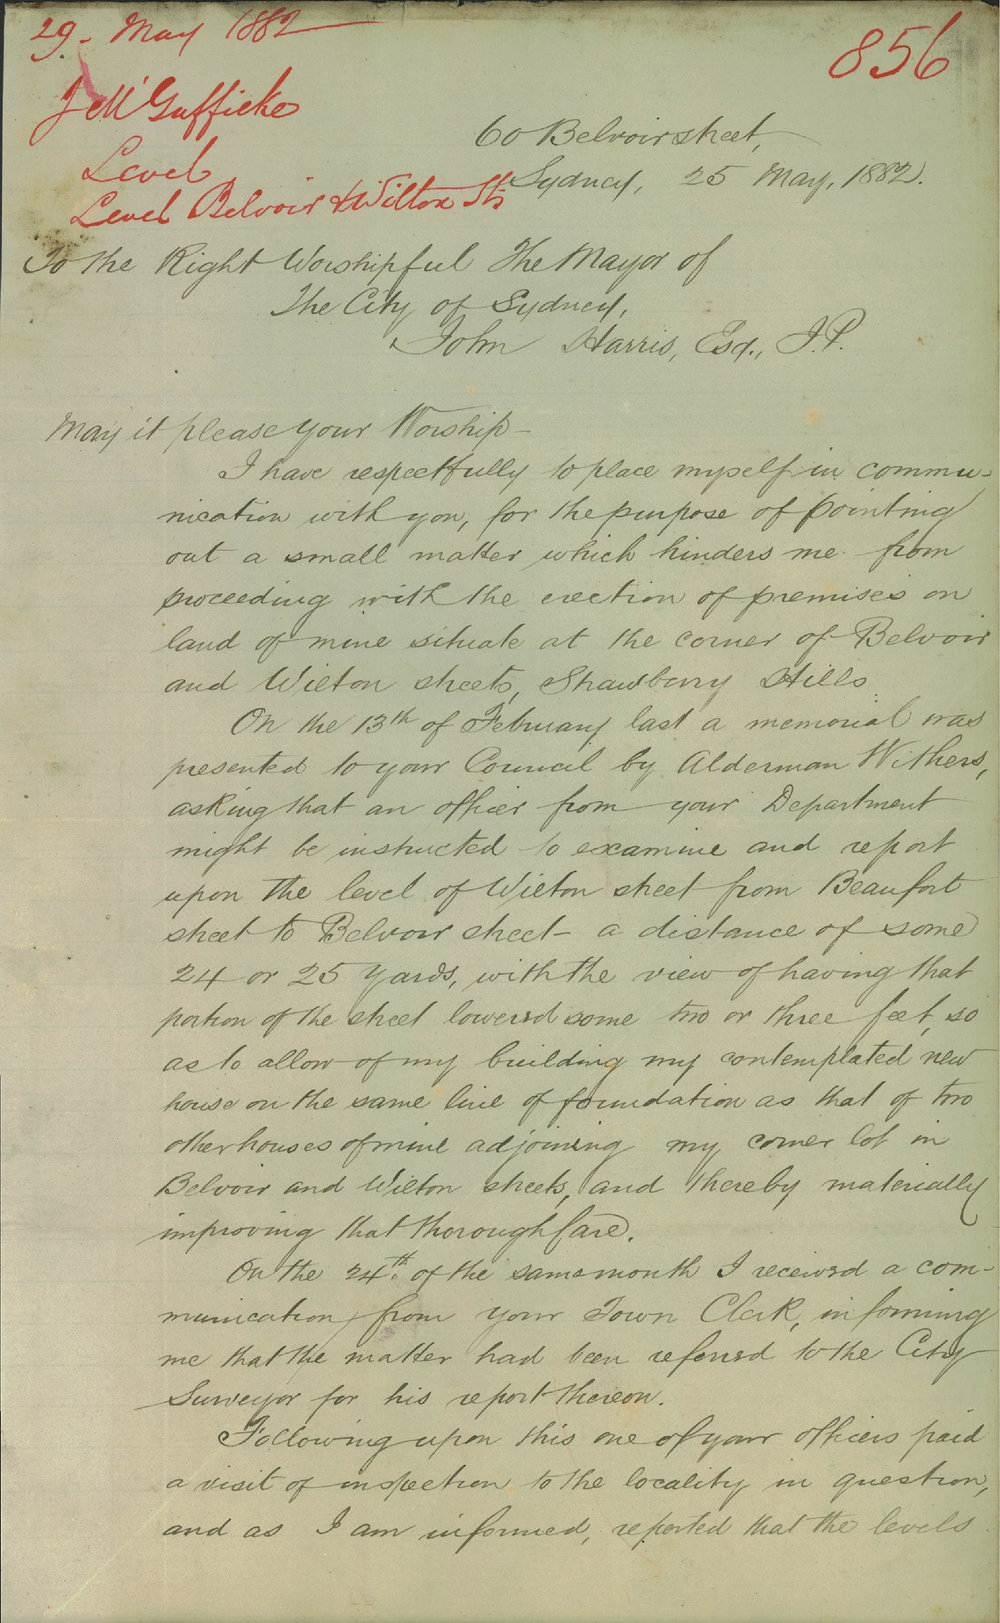 29. May 1882
856
J McGufficke
Level
Level Belvoir & Wilton Sts
60 Belvoir street,
Sydney, 25 May, 1882.
To the Right Worshipful The Mayor of
The City of Sydney,
John Harris, Esq., J.P.
May it please your Worship—
I have respectfully to place myself in commu-
nication with you, for the purpose of pointing
out a small matter which hinders me from
proceeding with the erection of premises on
land of mine situate at the corner of Belvoir
and Wilton streets, Strawberry Hills.
On the 13th of February last a memorial was
presented to your Council by Alderman Withers,
asking that an officer from your Department
might be instructed to examine and report
upon the level of Wilton street from Beaufort
street to Belvoir street — a distance of some
24 or 25 yards, with the view of having that
portion of the street lowered some two or three feet, so
as to allow of my building my contemplated new
house on the same line of foundation as that of two
other houses of mine adjoining my corner lot in
Belvoir and Wilton streets, and thereby materially
improving that thoroughfare.
On the 24th. of the same month I received a com-
munication from your Town Clerk, informing
me that the matter had been referred to the City
Surveyor for his report thereon.
Following upon this one of your officers paid
a visit of inspection to the locality in question,
and as I am informed, reported that the levels